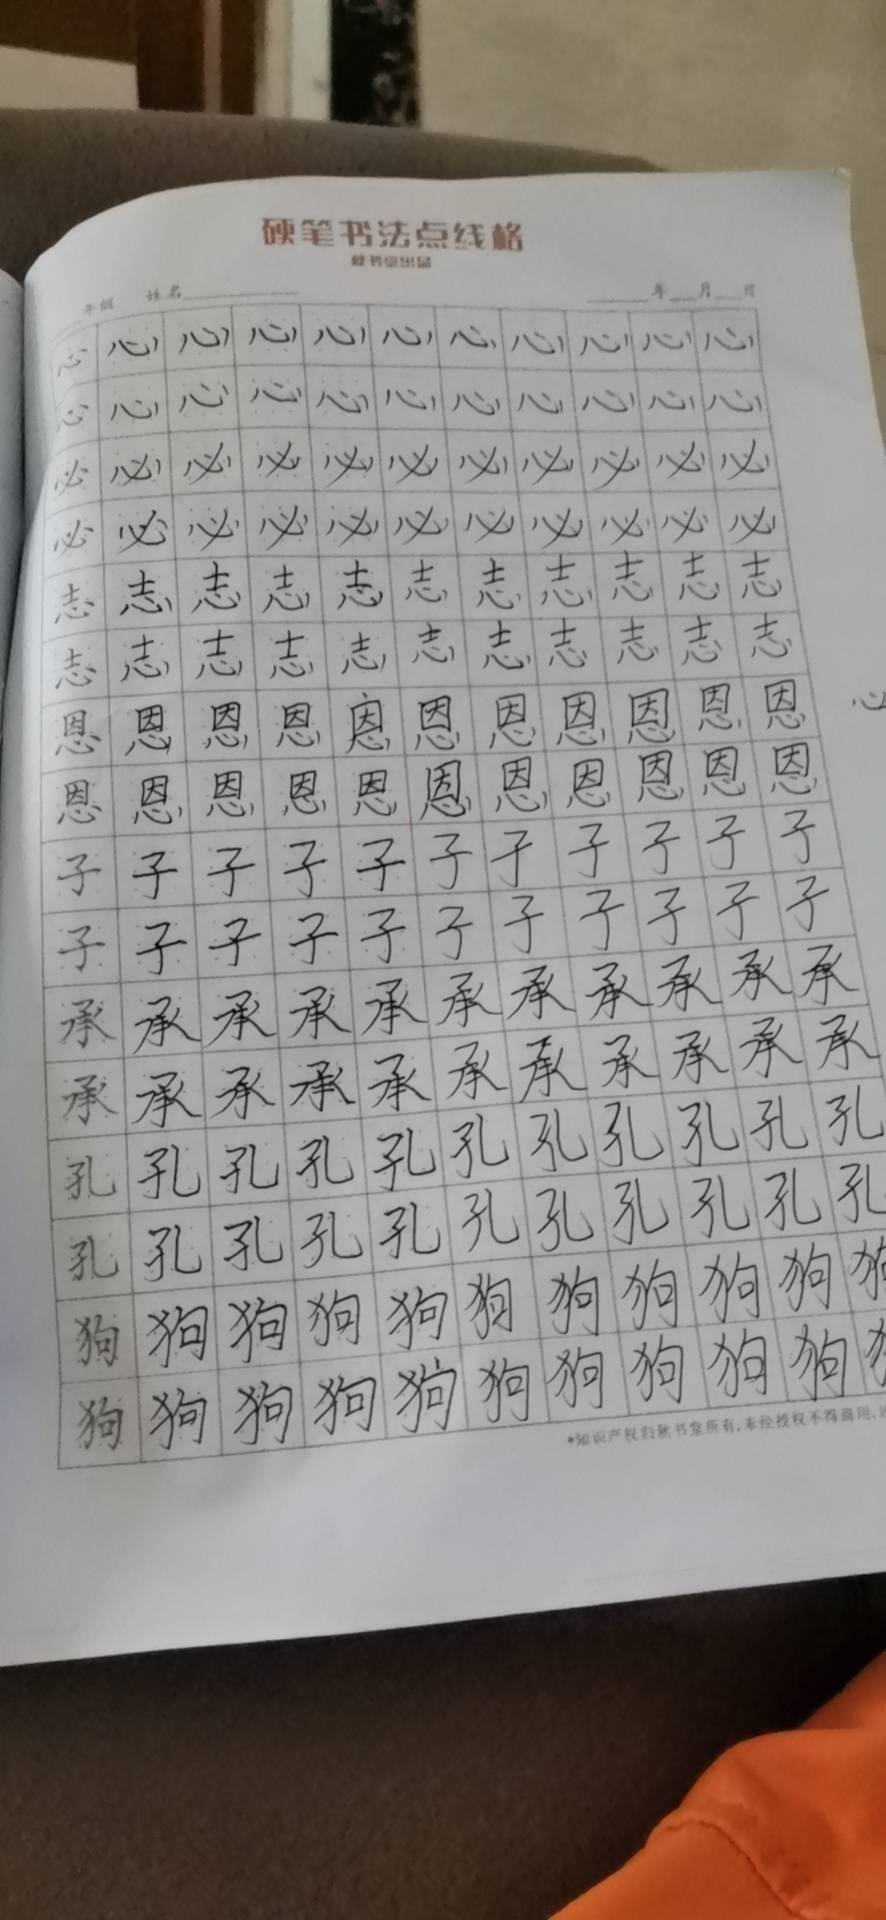 硬笔书法点线格
秋书堂出品
年级 姓名 年 月 日
心心心心心心心心心心心
心心心心心心心心心心心
必必必必必必必必必必必
必必必必必必必必必必必
志志志志志志志志志志志
志志志志志志志志志志志
恩恩恩恩恩恩恩恩恩恩恩
心
恩恩恩恩恩恩恩恩恩恩恩
子子子子子子子子子子子
子子子子子子子子子子子
承承承承承承承承承承承
承承承承承承承承承承承
孔孔孔孔孔孔孔孔孔孔孔
孔孔孔孔孔孔孔孔孔孔孔
狗狗狗狗狗狗狗狗狗狗狗
狗狗狗狗狗狗狗狗狗狗
*知识产权归秋书堂所有,未经授权不得商用,